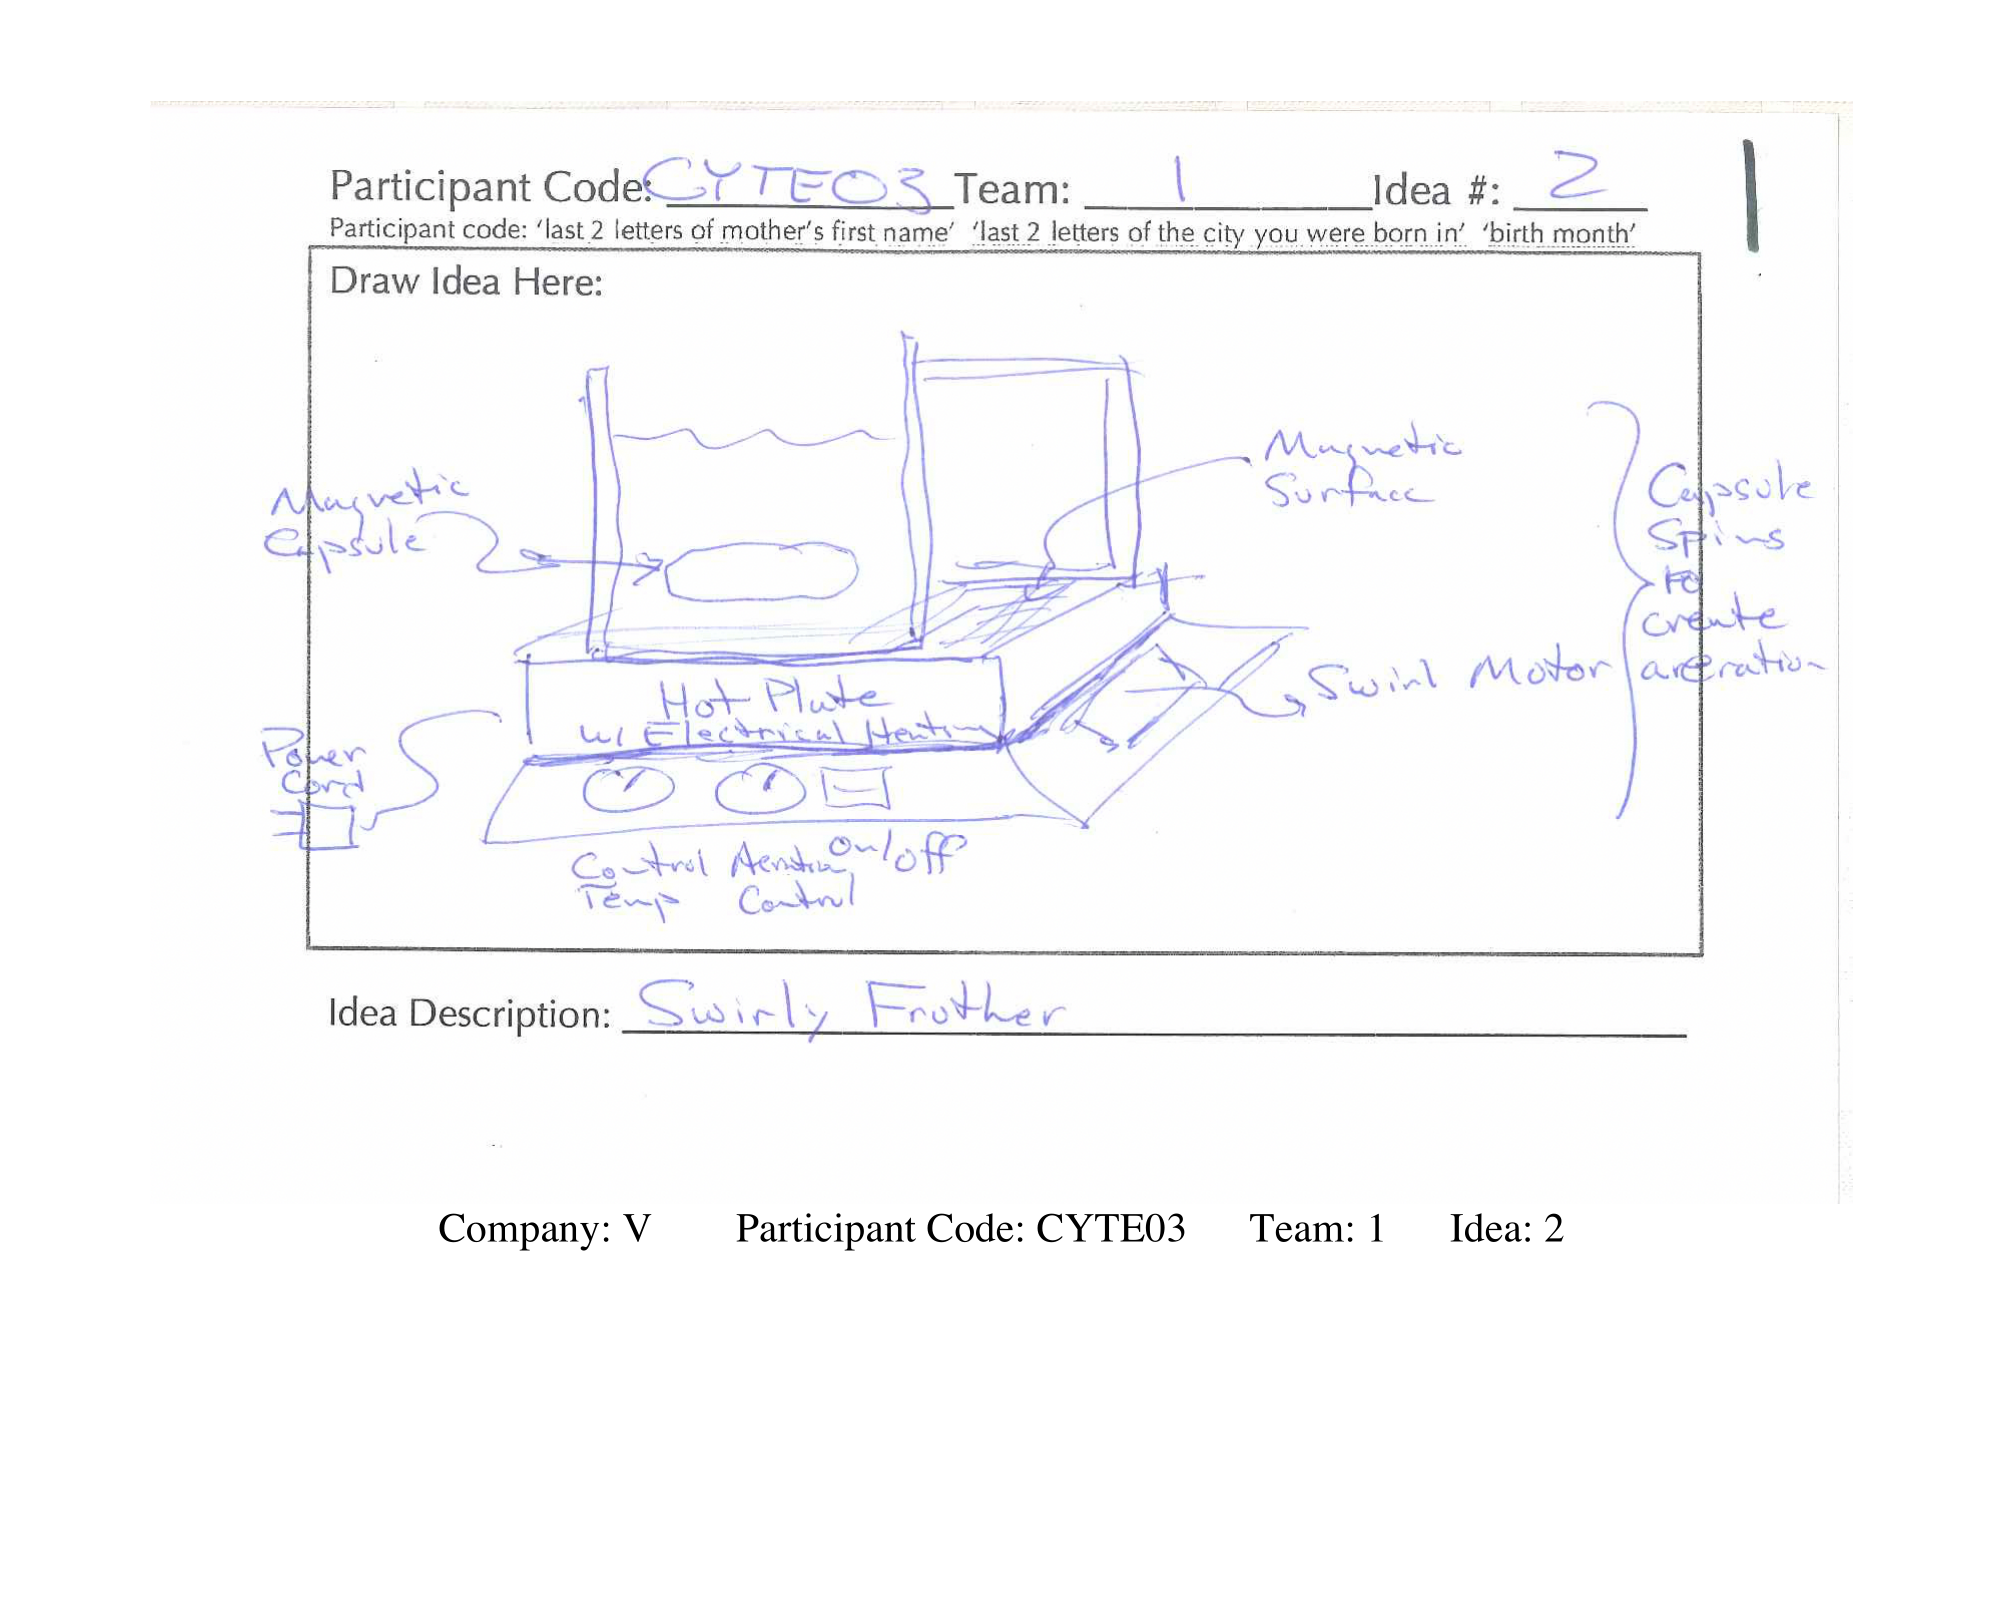 Participant Code: CYTE03 Team: 1 Idea #: 2
Participant code: ‘last 2 letters of mother’s first name’ ‘last 2 letters of the city you were born in’ ‘birth month’
Draw Idea Here:
Magnetic
Capsule
Magnetic
Surface
Capsule
Spins
to
create
aeration
Swirl Motor
Hot Plate
w/ Electrical Heating
Power
Cord
Control
Temp
Aeration
Control
On/off
Idea Description: Swirly Frother
Company: V Participant Code: CYTE03 Team: 1 Idea: 2